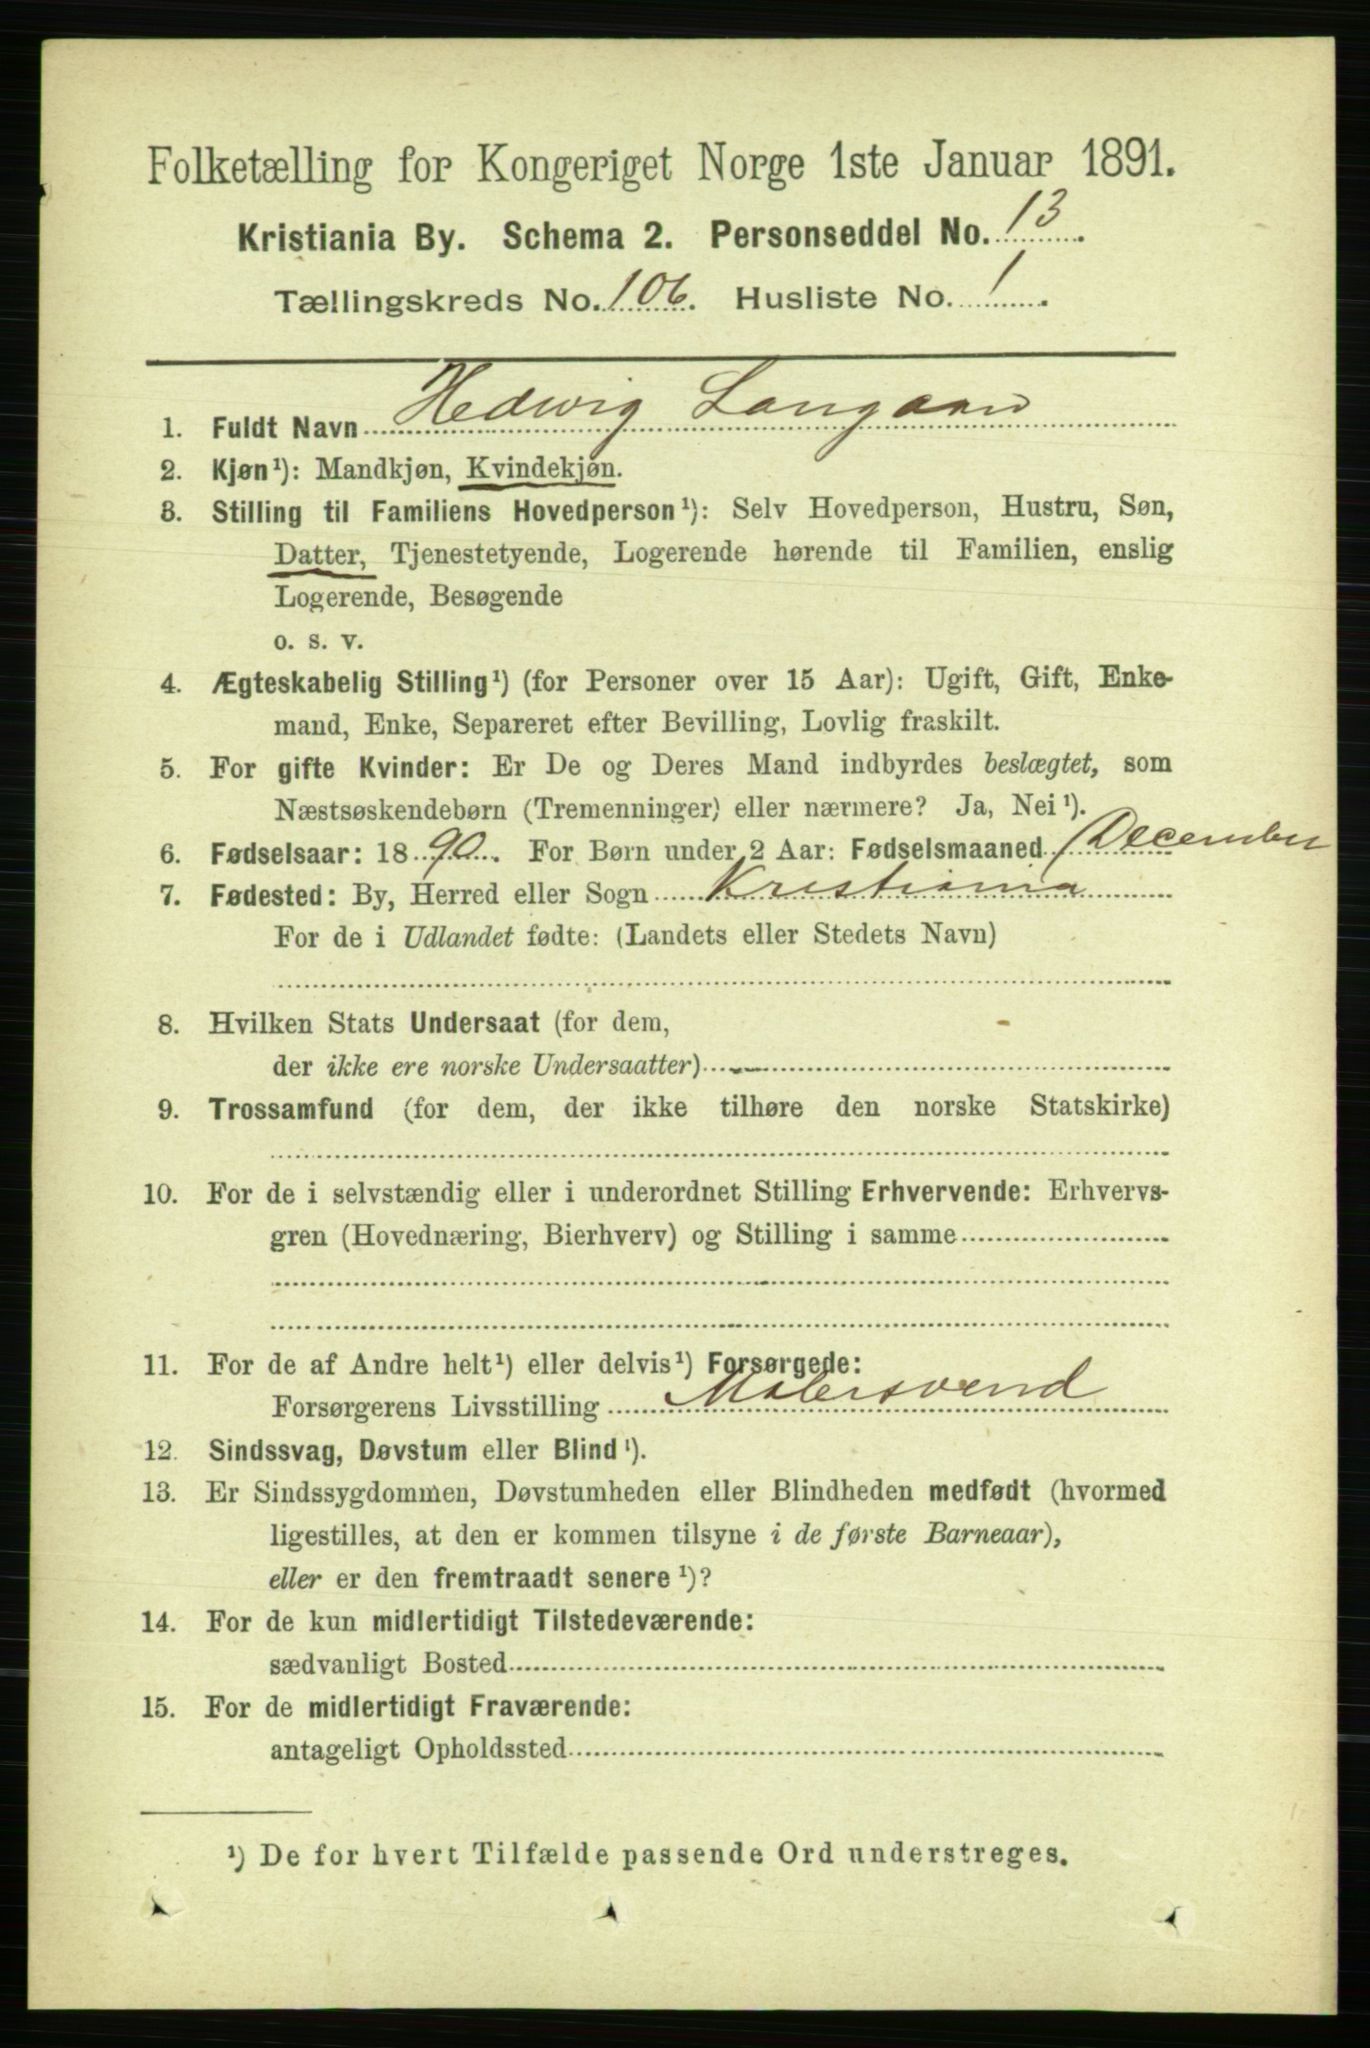 Folketælling for Kongeriget Norge 1ste Januar 1891.
Kristiania By. Schema 2. Personseddel No. 13.
Tællingskreds No. 106. Husliste No. 1.
1. Fuldt Navn Hedwig Langaard
2. Kjøn¹): Mandkjøn, Kvindekjøn.
3. Stilling til Familiens Hovedperson¹): Selv Hovedperson, Hustru, Søn,
Datter, Tjenestetyende, Logerende hørende til Familien, enslig
Logerende, Besøgende
o. s. v.
4. Ægteskabelig Stilling¹) (for Personer over 15 Aar): Ugift, Gift, Enke-
mand, Enke, Separeret efter Bevilling, Lovlig fraskilt.
5. For gifte Kvinder: Er De og Deres Mand indbyrdes beslægtet, som
Næstsøskendebørn (Tremenninger) eller nærmere? Ja, Nei¹).
6. Fødselsaar: 1890. For Børn under 2 Aar: Fødselsmaaned December
7. Fødested: By, Herred eller Sogn Kristiania
For de i Udlandet fødte: (Landets eller Stedets Navn)
8. Hvilken Stats Undersaat (for dem,
der ikke ere norske Undersaatter)
9. Trossamfund (for dem, der ikke tilhøre den norske Statskirke)
10. For de i selvstændig eller i underordnet Stilling Erhvervende: Erhvervs-
gren (Hovednæring, Bierhverv) og Stilling i samme
11. For de af Andre helt¹) eller delvis¹) Forsørgede:
Forsørgerens Livsstilling Malersvend
12. Sindssvag, Døvstum eller Blind¹).
13. Er Sindssygdommen, Døvstumheden eller Blindheden medfødt (hvormed
ligestilles, at den er kommen tilsyne i de første Barneaar),
eller er den fremtraadt senere¹)?
14. For de kun midlertidigt Tilstedeværende:
sædvanligt Bosted
15. For de midlertidigt Fraværende:
antageligt Opholdssted
¹) De for hvert Tilfælde passende Ord understreges.